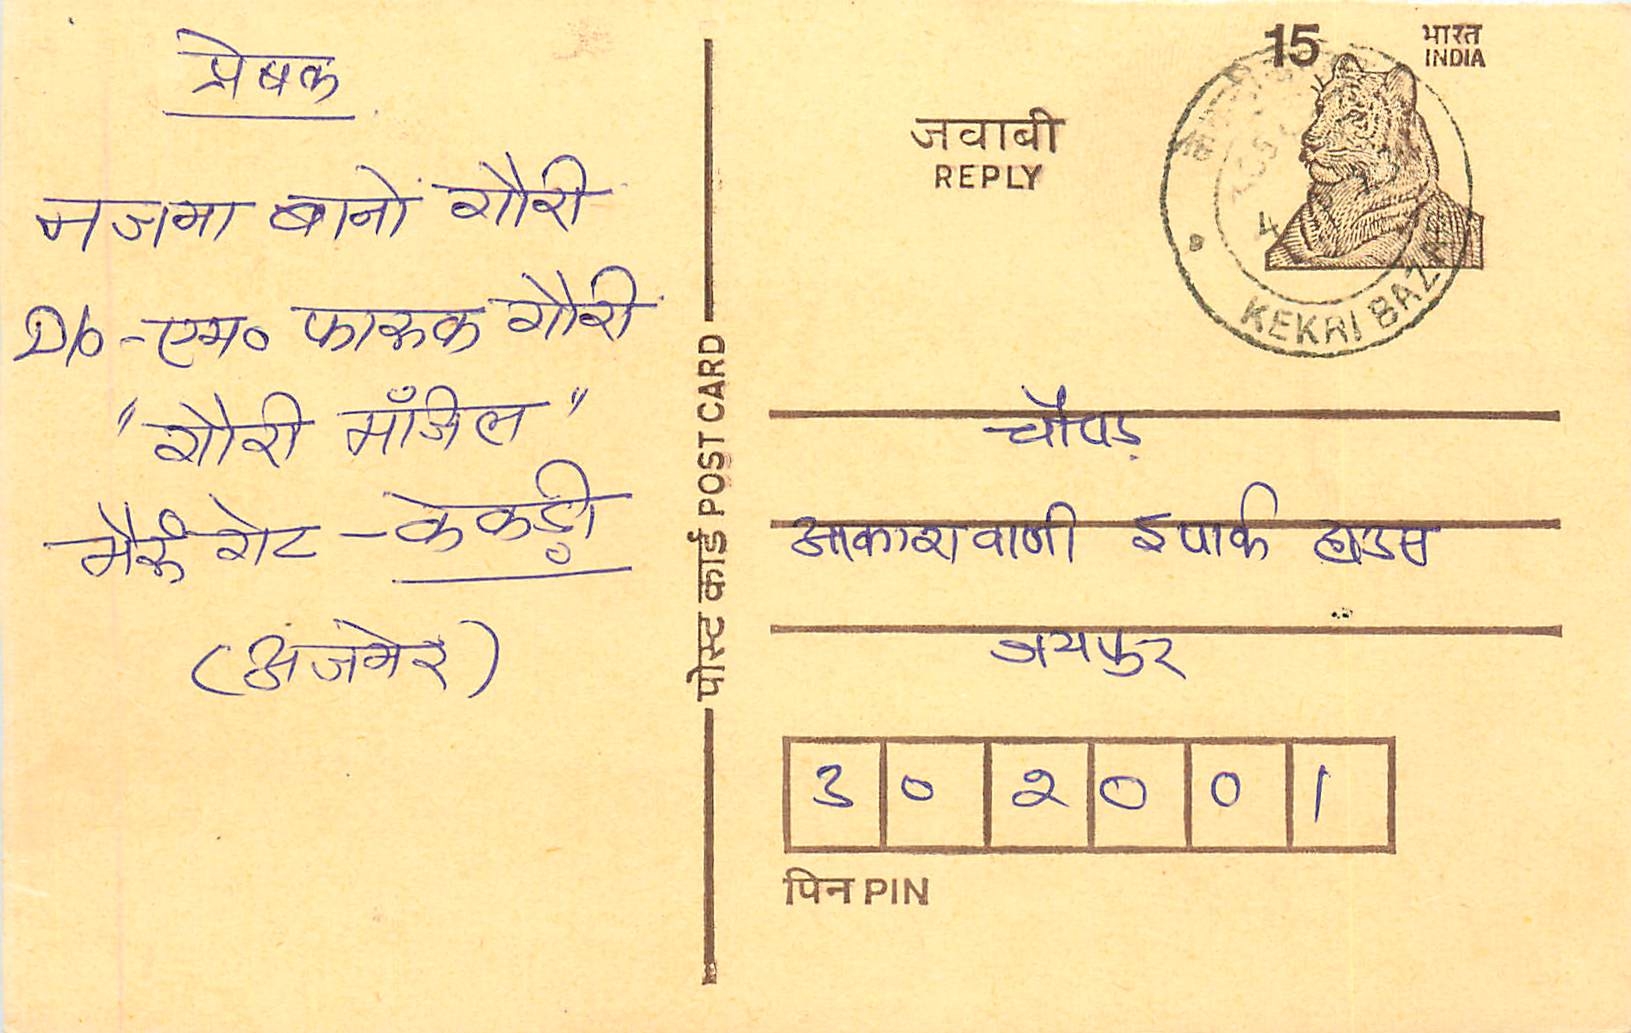 प्रेषक
नजमा बानो गौरी
D/o - एम० फारूक गौरी
"गौरी मँजिल"
भैरूं गेट - केकड़ी
(अजमेर)
पोस्ट कार्ड POST CARD
15
भारत
INDIA
जवाबी
REPLY
KEKRI BAZAR
चौपड़
आकाशवाणी ईपार्क हाउस
जयपुर
302001
पिन PIN